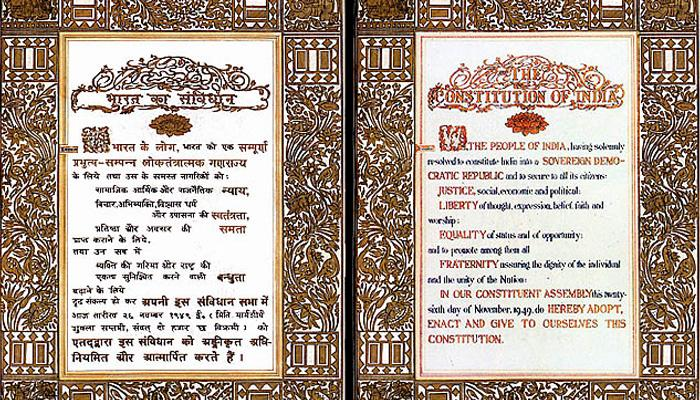 भारत का संविधान
हम भारत के लोग, भारत को एक सम्पूर्ण
प्रभुत्व-सम्पन्न लोकतंत्रात्मक गणराज्य
के लिये तथा उस के समस्त नागरिकों को:
सामाजिक आर्थिक और राजनैतिक न्याय,
विचार,अभिव्यक्ति,विश्वास धर्म
और उपासना की स्वतंत्रता,
प्रतिष्ठा और अवसर की समता
प्राप्त कराने के लिये,
तथा उन सब में
व्यक्ति की गरिमा और राष्ट्र की
एकता सुनिश्चित करने वाली बन्धुता
बढ़ाने के लिये
दृढ़ संकल्प हो कर अपनी इस संविधान सभा में
आज तारीख २६ नवम्बर १९४९ ई॰ ( मिति मार्गशीर्ष
शुक्ला सप्तमी, संवत् दो हजार छ विक्रमी ) को
एतद्द्वारा इस संविधान को अङ्गीकृत अधि-
नियमित और आत्मार्पित करते हैं ।
THE
CONSTITUTION OF INDIA
WE, THE PEOPLE OF INDIA, having solemnly
resolved to constitute India into a SOVEREIGN DEMO-
CRATIC REPUBLIC and to secure to all its citizens:
JUSTICE, social, economic and political;
LIBERTY of thought, expression, belief, faith and
worship;
EQUALITY of status and of opportunity;
and to promote among them all
FRATERNITY assuring the dignity of the individual
and the unity of the Nation;
IN OUR CONSTITUENT ASSEMBLY this twenty-
sixth day of November, 1949, do HEREBY ADOPT,
ENACT AND GIVE TO OURSELVES THIS
CONSTITUTION.